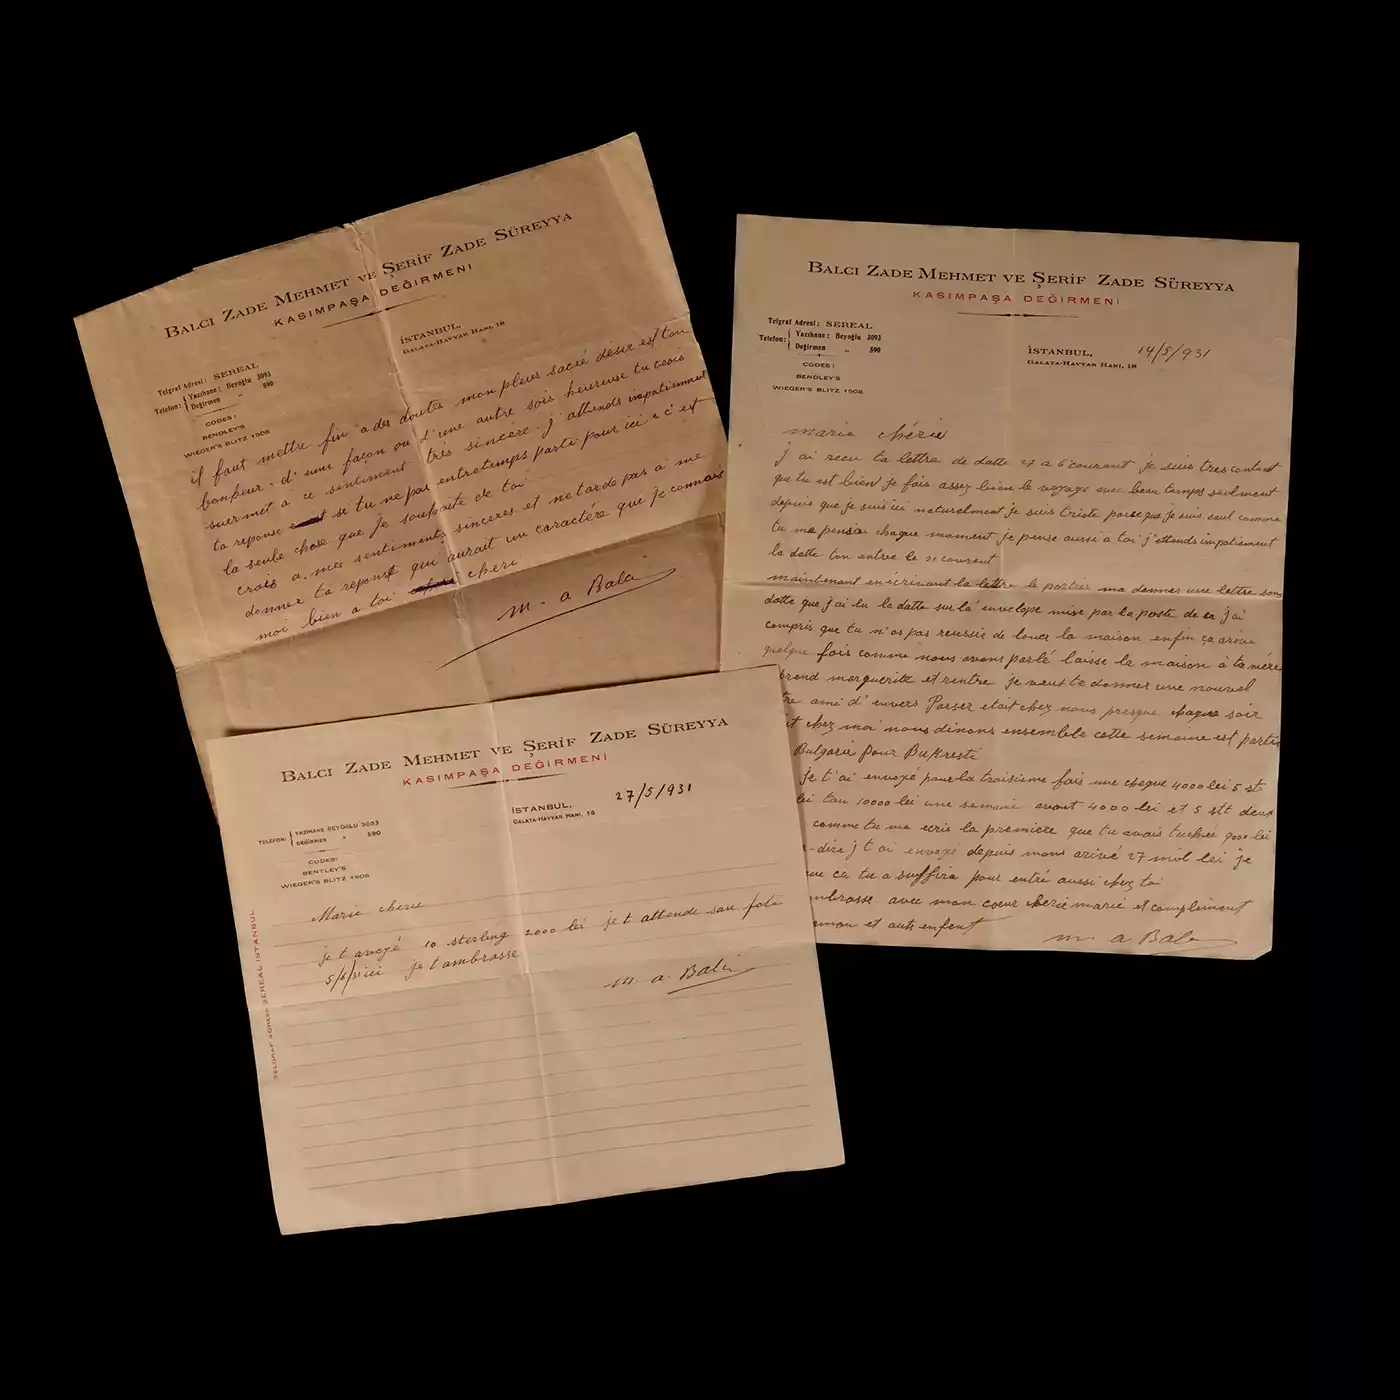 BALCI ZADE MEHMET VE ŞERİF ZADE SÜREYYA
KASIMPAŞA DEĞİRMENİ
Telgraf Adresi: SEREAL
Telefon: Yazıhane: Beyoğlu 3093
Değirmen „ 590
CODES:
BENDLEY'S
WIEGER'S BLITZ 1908
İSTANBUL,
GALATA-HAVYAR HANI, 18
il faut mettre fin a des doutes mon pleus sacré désir est ton
bonheur. d'une façon ou d'une autre sois heureuse tu crois
suermet a ce sentiment très sincère. j'attends impatienment
ta reponse si tu ne pas entretemps parti pour ici c'est
la seule chose que je souhaite de toi
crois a mes sentiments sinceres et ne tarde pas a me
donner ta reponse qui aurait un caractére que je connais
moi bien a toi cheri
m. a Balcı
BALCI ZADE MEHMET VE ŞERİF ZADE SÜREYYA
KASIMPAŞA DEĞİRMENİ
Telgraf Adresi: SEREAL
Telefon: Yazıhane: Beyoğlu 3093
Değirmen „ 590
CODES:
BENDLEY'S
WIEGER'S BLITZ 1908
İSTANBUL, 14/5/931
GALATA-HAVYAR HANI, 18
marie chérie
j ai recu ta lettre de datte 27 a 6 courant je suis tres content
que tu est bien je fais assez bien le voyage avec beau temps seulment
depuis que je suis ici naturelment je suis triste parse que je suis seul comme
tu me pensée chaque moment je pense aussi a toi j'attends impatiament
la datte ton entre le 21 courent
maintenant en écrivant la lettre le portier ma donner une lettre sans
datte que j'ai lu la datte sur la envelope mise par la poste de ça j ai
compris que tu n'as pas reussie de louer la maison enfin ça arive
quelque fois comme nous avons parlé laisse la maison à ta mére
prend marguerite et rentre je veut te donner une nouvel
tre ami d'envers Parser etait chez nous presque chaque soir
t chez moi nous dinons ensemble cette semaine est partie
Bulgarie pour Bukresti
je t'ai envoyé pour la troisieme fois une cheque 4000 lei 5 st
lei tau 10000 lei une semaine avant 4000 lei et 5 stt deux
comme tu ma ecris la premiere que tu avais tuchée 9000 lei
-dire j t ai envoyé depuis mons arivé 27 mil lei je
que ca tu a suffira pour entré aussi chez toi
mbrasse avec mon coeur cherie marie et compliment
maman et auts enfent
m. a Balcı
BALCI ZADE MEHMET VE ŞERİF ZADE SÜREYYA
KASIMPAŞA DEĞİRMENİ
İSTANBUL, 27/5/931
GALATA-HAVYAR HANI, 18
TELEFON: YAZIHANE BEYOĞLU 3093
DEĞİRMEN „ 590
CODES:
BENTLEY'S
WIEGER'S BLITZ 1908
TELGRAF ADRESİ: SEREAL İSTANBUL
Marie cherie
je t avoyé 10 sterling 2000 lei je t attende sau fote
5/6/31 ici je t ambrasse
m. a. Balcı